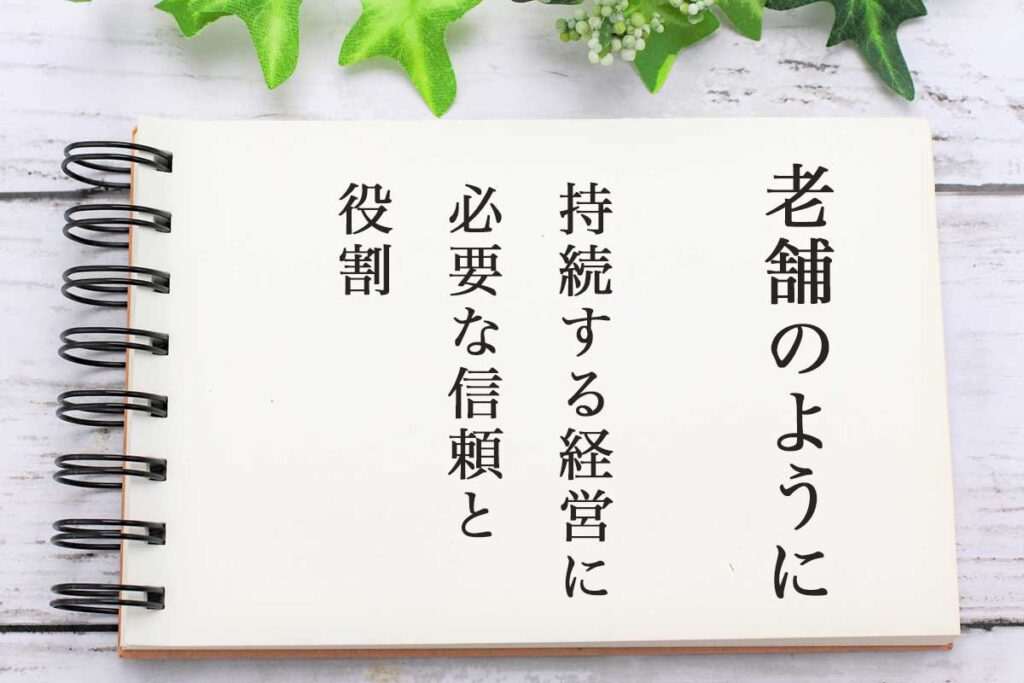 老舗のように
持続する経営に
必要な信頼と
役割